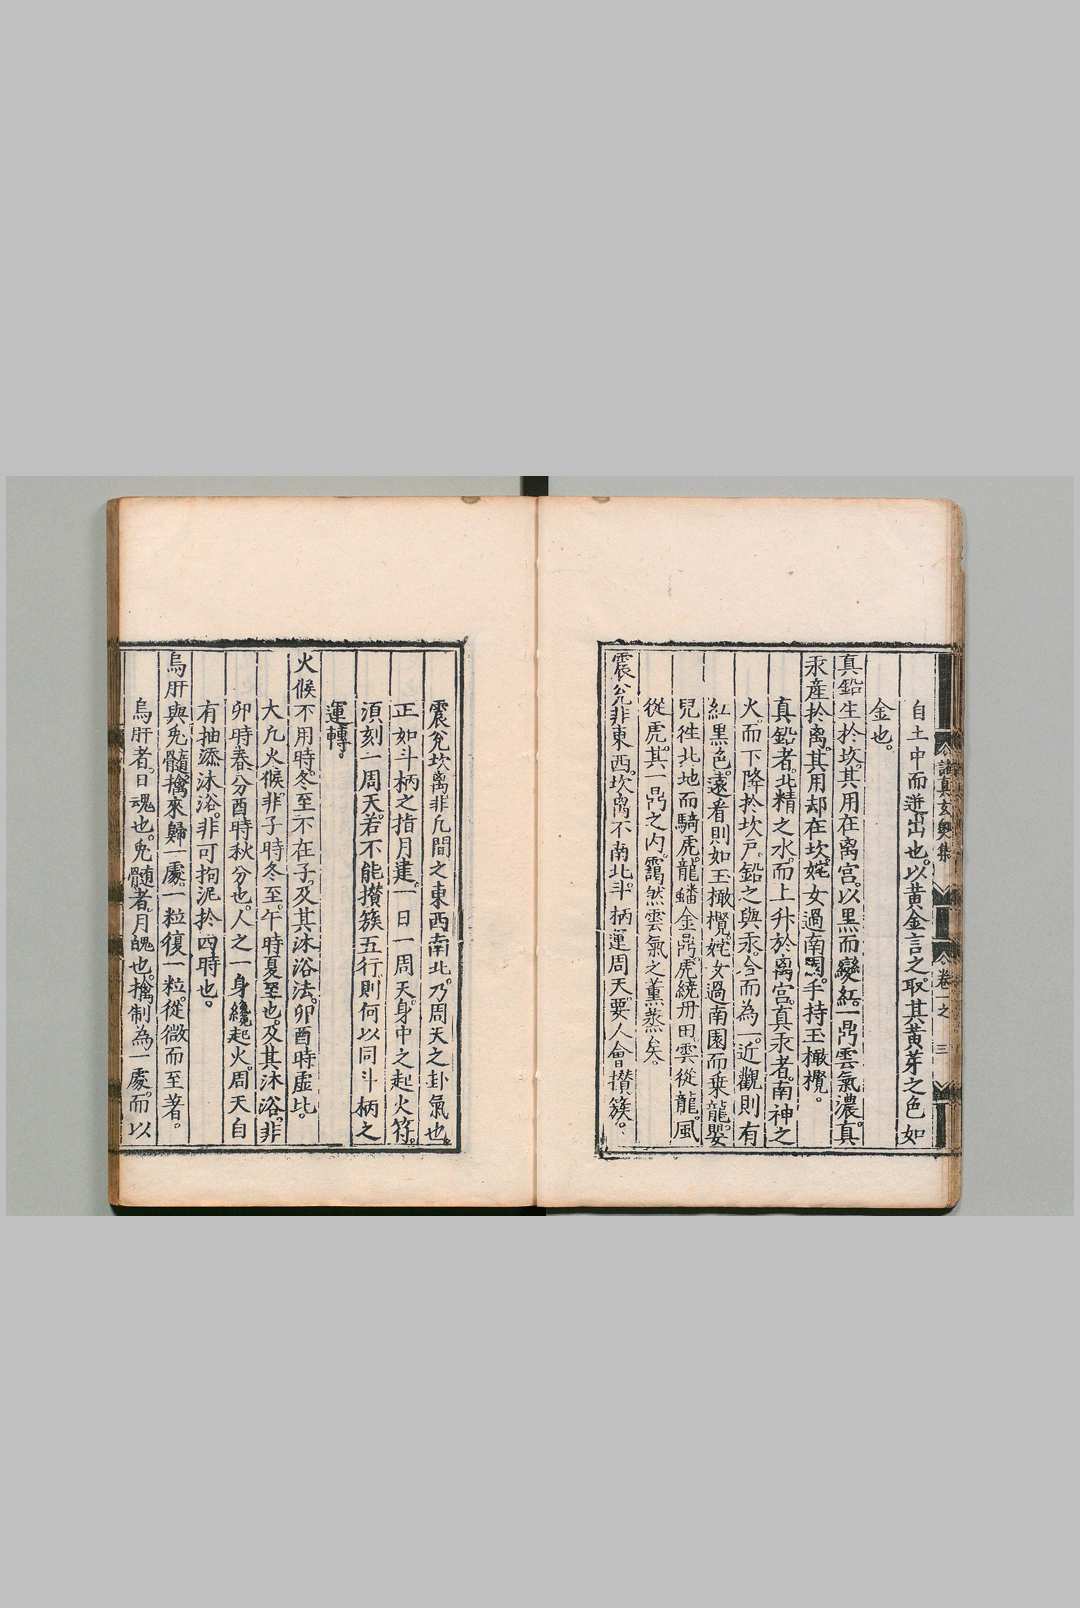 諸真玄奧集 卷一之 三
自土中而迸出也。以黃金言之。取其黃芽之色如
金也。
真鉛生扵坎。其用在离宫。以黑而變紅。一鼎雲氣濃。真
汞産扵离。其用却在坎。姹女過南園。手持玉橄欖。
真鉛者。北精之水。而上升於离宫。真汞者。南神之
火。而下降扵坎戶。鉛之與汞。合而為一。近觀則有
紅黑色。遠看則如玉橄欖。姹女過南園而乗龍。嬰
兒徃北地而騎虎。龍蟠金鼎。虎繞丹田。雲從龍。風
從虎。其一鼎之内。靄然雲氣之薰蒸矣。
震兊非東西。坎离不南北。斗柄運周天。要人㑹攅簇。
震兊坎离非凢間之東西南北。乃周天之卦氣也。
正如斗柄之指月建。一日一周天。身中之起火符。
湏刻一周天。若不能攅簇五行。則何以同斗柄之
運轉。
火候不用時。冬至不在子。及其沐浴法。卯酉時虚比。
大凢火候。非子時冬至。午時夏至也。及其沐浴。非
卯時春分酉時秋分也。人之一身纔起火。周天自
有抽添沐浴。非可拘泥扵四時也。
烏肝與兎髓。擒來歸一處。一粒復一粒。從微而至著。
烏肝者。日魂也。兎髓者。月魄也。擒制為一處。而以